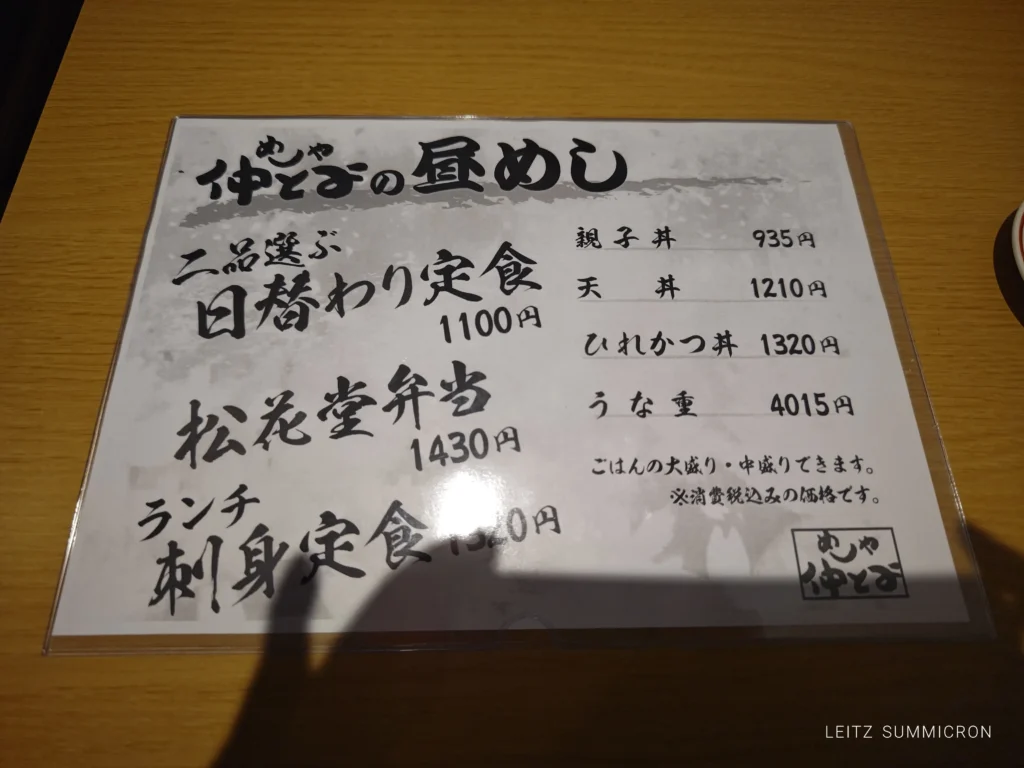 めしや
仲とみの昼めし
二品選ぶ
日替わり定食
1100円
松花堂弁当
1430円
ランチ
刺身定食 1320円
親子丼 935円
天丼 1210円
ひれかつ丼 1320円
うな重 4015円
ごはんの大盛り・中盛りできます。
※消費税込みの価格です。
めしや
仲とみ
LEITZ SUMMICRON